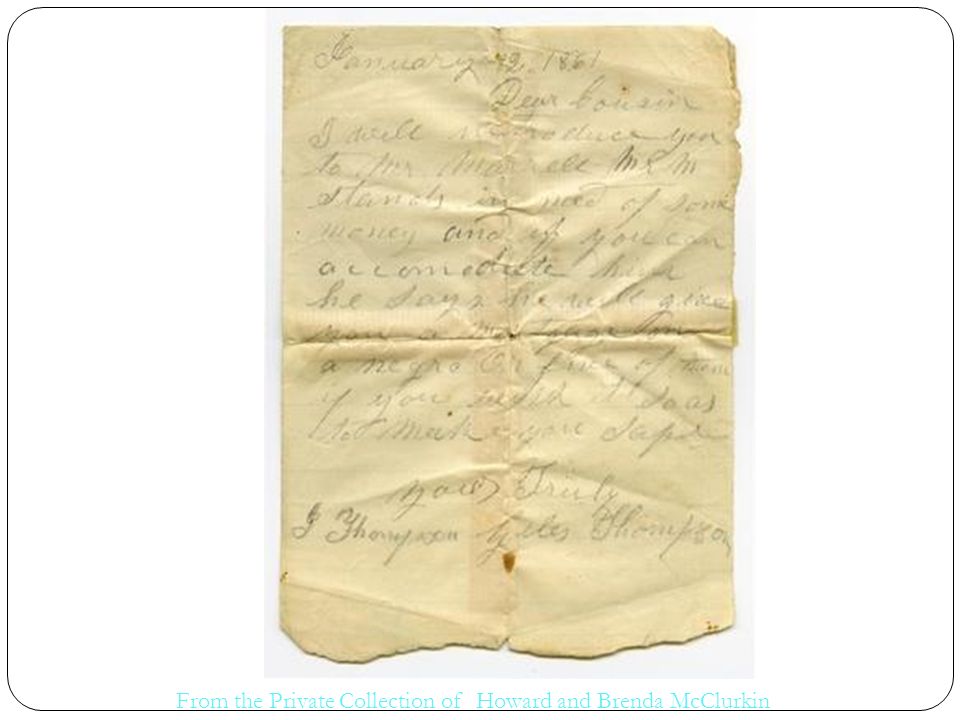 January 1861
Dear Cousin
I will introduce you
to Mr Murrell Mr M
stands in need of some
money and if you can
accomodate him
he says he will give
you a mortgage on
a negro or five of them
if you wish it so as
to make you safe
yours Truly
J Thompson Giles Thompson
From the Private Collection of Howard and Brenda McClurkin